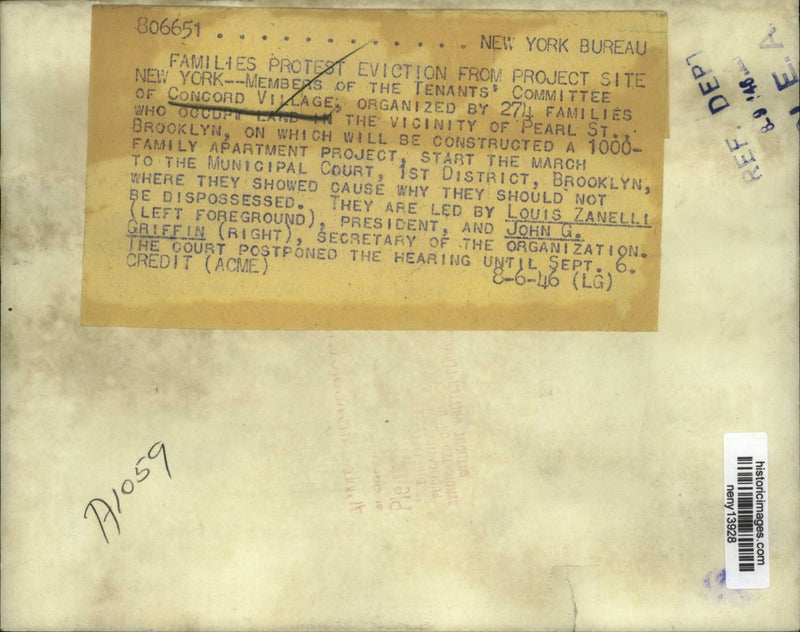 806651 . . . . . . . . . . . . . NEW YORK BUREAU
FAMILIES PROTEST EVICTION FROM PROJECT SITE
NEW YORK--MEMBERS OF THE TENANTS' COMMITTEE
OF CONCORD VILLAGE, ORGANIZED BY 274 FAMILIES
WHO OCCUPY LAND IN THE VICINITY OF PEARL ST.,
BROOKLYN, ON WHICH WILL BE CONSTRUCTED A 1000-
FAMILY APARTMENT PROJECT, START THE MARCH
TO THE MUNICIPAL COURT, 1ST DISTRICT, BROOKLYN,
WHERE THEY SHOWED CAUSE WHY THEY SHOULD NOT
BE DISPOSSESSED. THEY ARE LED BY LOUIS ZANELLI
(LEFT FOREGROUND), PRESIDENT, AND JOHN G.
GRIFFIN (RIGHT), SECRETARY OF THE ORGANIZATION.
THE COURT POSTPONED THE HEARING UNTIL SEPT. 6.
CREDIT (ACME) 8-6-46 (LG)
REF. DEPT
N E A
A1059
historicimages.com
neny13928